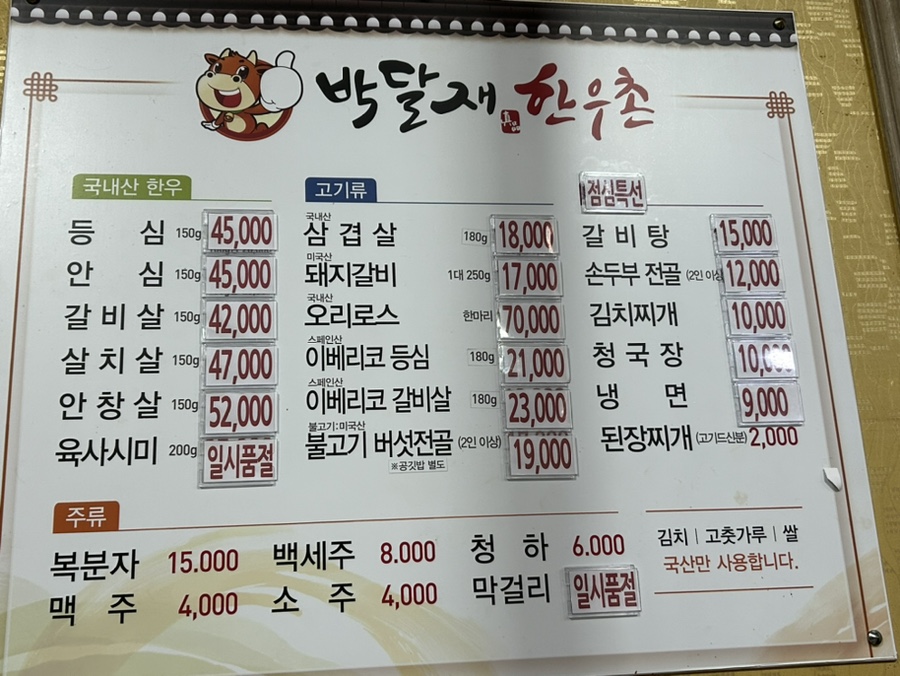 박달재 한우촌
국내산 한우
등 심 150g 45,000
안 심 150g 45,000
갈비살 150g 42,000
살치살 150g 47,000
안창살 150g 52,000
육사시미 200g 일시품절
고기류
국내산
삼겹살 180g 18,000
미국산
돼지갈비 1대 250g 17,000
국내산
오리로스 한마리 70,000
스페인산
이베리코 등심 180g 21,000
스페인산
이베리코 갈비살 180g 23,000
불고기:미국산
불고기 버섯전골 (2인 이상) 19,000
※공깃밥 별도
점심특선
갈비탕 15,000
손두부 전골 (2인 이상 12,000
김치찌개 10,000
청국장 10,000
냉 면 9,000
된장찌개 (고기드신분) 2,000
주류
복분자 15.000 백세주 8.000 청 하 6.000
맥 주 4,000 소 주 4,000 막걸리 일시품절
김치 | 고춧가루 | 쌀
국산만 사용합니다.